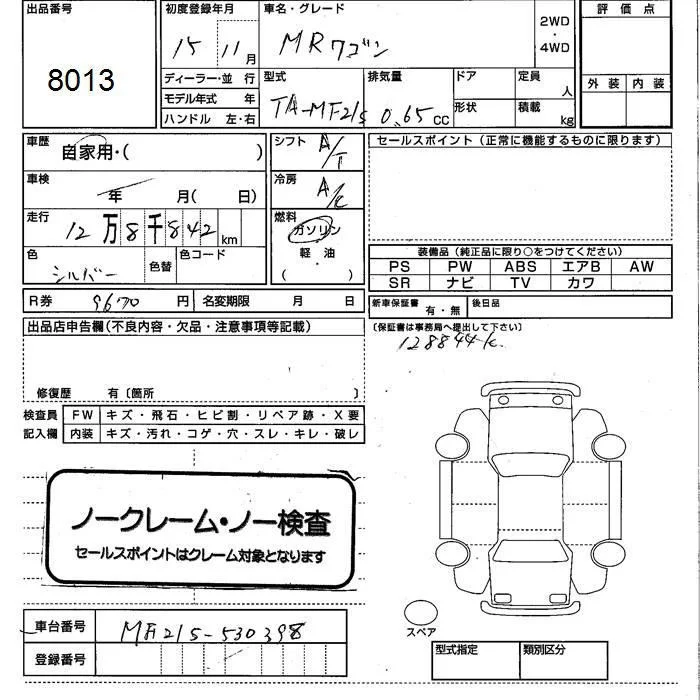 出品番号
8013
初度登録年月
15 11月
車名・グレード
MRワゴン
2WD
・
4WD
評価点
外装 内装
ディーラー・並行
モデル年式 年
ハンドル 左・右
型式
TA-MF21S
排気量
0.65cc
ドア
形状
定員
人
積載
kg
車歴
自家用・( )
車検
年 月( 日)
走行
12万8千842km
色
シルバー
色替
色コード
シフト
A/T
冷房
A/C
燃料
ガソリン
軽油
( )
セールスポイント(正常に機能するものに限ります)
装備品(純正品に限り○をつけてください)
PS PW ABS エアB AW
SR ナビ TV カワ
R券 9670円 名変期限 月 日
新車保証書 有・無 後日品
(保証書は事務局へ提出して下さい)
128844k
出品店申告欄(不良内容・欠品・注意事項等記載)
修復歴 有〔箇所 〕
検査員 FW キズ・飛石・ヒビ割・リペア跡・X要
記入欄 内装 キズ・汚れ・コゲ・穴・スレ・キレ・破レ
ノークレーム・ノー検査
セールスポイントはクレーム対象となります
車台番号 MF21S-530398
登録番号
スペア
型式指定 類別区分